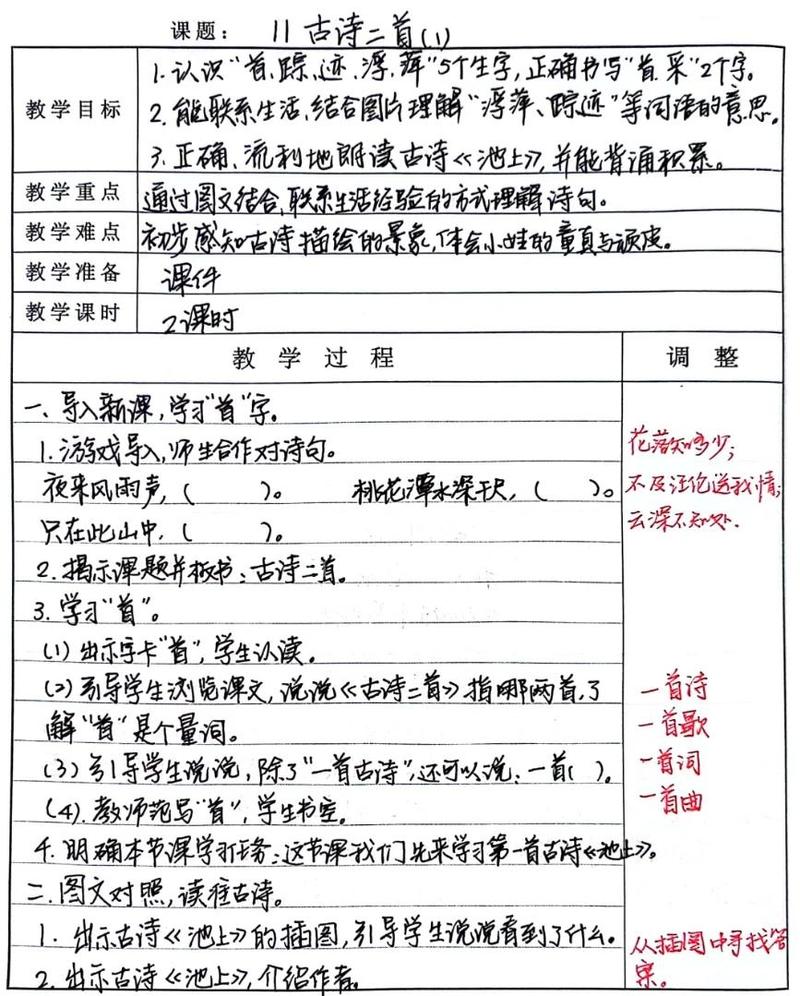 课题： 11 古诗二首(1)
教学目标
1.认识“首、踪、迹、浮、萍”5个生字,正确书写“首、采”2个字。
2.能联系生活,结合图片理解“浮萍、踪迹”等词语的意思。
3.正确、流利地朗读古诗《池上》,并能背诵积累。
教学重点 通过图文结合,联系生活经验的方式理解诗句。
教学难点 初步感知古诗描绘的景象,体会小娃的童真与顽皮。
教学准备 课件
教学课时 2课时
教学过程 调整
一、导入新课,学习“首”字。
1.游戏导入,师生合作对诗句。 花落知多少;
夜来风雨声,( )。 桃花潭水深千尺,( )。 不及汪伦送我情;
只在此山中,( )。 云深不知处.
2.揭示课题并板书:古诗二首。
3.学习“首”。
(1)出示字卡“首”,学生认读。
(2)引导学生浏览课文,说说《古诗二首》指哪两首,了 一首诗
解“首”是个量词。 一首歌
(3)引导学生说说,除了“一首古诗”,还可以说:一首( )。 一首词
(4).教师范写“首”,学生书空。 一首曲
4.明确本节课学习任务:这节课我们先来学习第一首古诗《池上》。
二.图文对照,读准古诗。
1.出示古诗《池上》的插图,引导学生说说看到了什么。 从插图中寻找答
2.出示古诗《池上》,介绍作者。 案。